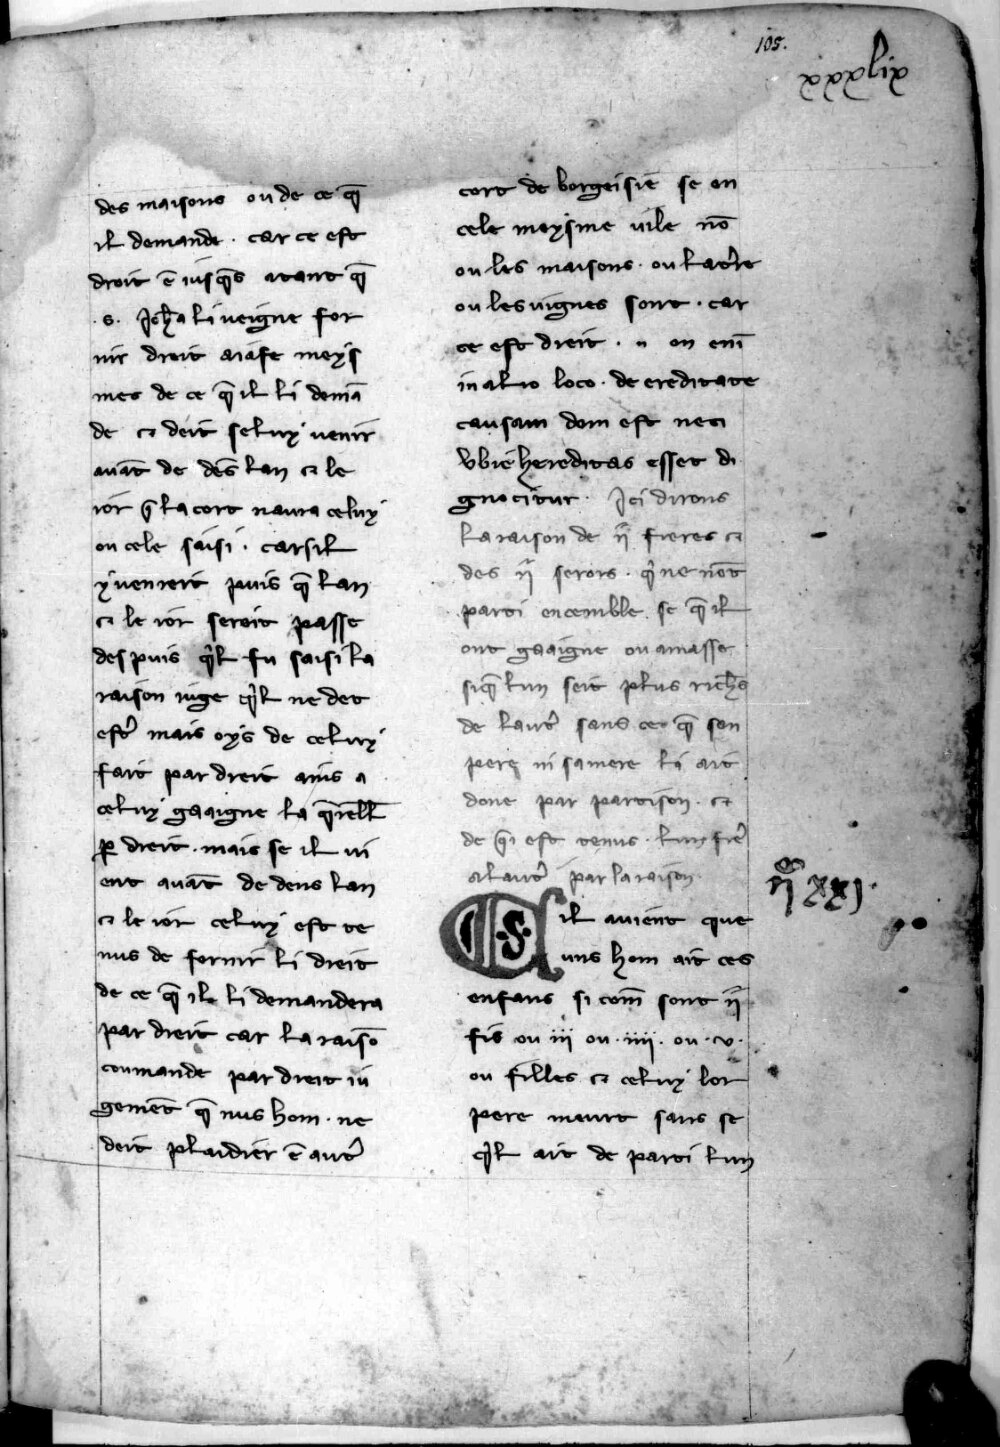 105.
xxxxlix
des maisons ou de ce q̄
il demande · car ce est
droit ē iusq̄s atant q̄
· s · Jeh̄a li veigne for
nir droit a iafe meys
mes de ce q̄ il li demā
de ⁊ deit seluy venir
auāt de dēs lan ⁊ le
ior q̄ la cort naura celuy
ou cele saisi · car sil
y venreit puis q̄ lan
⁊ le ior sereit passe
des puis q̓l fu saisi la
raison iuge q̓l ne det
estr̓ mais oys de celuy
fait par dreit ains a
celuy gaaigne la q̄rell̄
ꝑ dreit · mais se il ui
ent auāt de dens lan
⁊ le ior celuy est te
nus de fornir li dreit
de ce q̄ ile li demandera
par dreit car la raisō
coumande par dreit iu
gemēt q̄ nus hom · ne
deit plaidier ē autr̓
cort de borgeisie se on
cele meysme uile nō
ou les maisons · ou la tr̓re
ou les uignes sont · car
ce est dreit · n on eni
in alio loco · de ereditate
causam dom est nec
vbi hereditas esset di
gnocitur · Jci dirons
la raison de ·ii· freres ⁊
des ·ii· serors · q̓ ne nōt
parti encemble · se q̄ il
ont gaaigne ou amasse ·
si q̄ lun seit plus riche
de lautr̓ sans ce q̄ son
pere ni sa mere li ait
done par partison · ⁊
de q̄i est tenus · lun frr̓e
a lautr̓ par la raison ·
Sil auient que
uns hom ait ces
enfans si com̄ sont ii
fis ou iii ou · iiii · ou · v ·
ou filles ⁊ celuy lor
pere meurt sans se
q̓l ait de parti lun
xxj ·